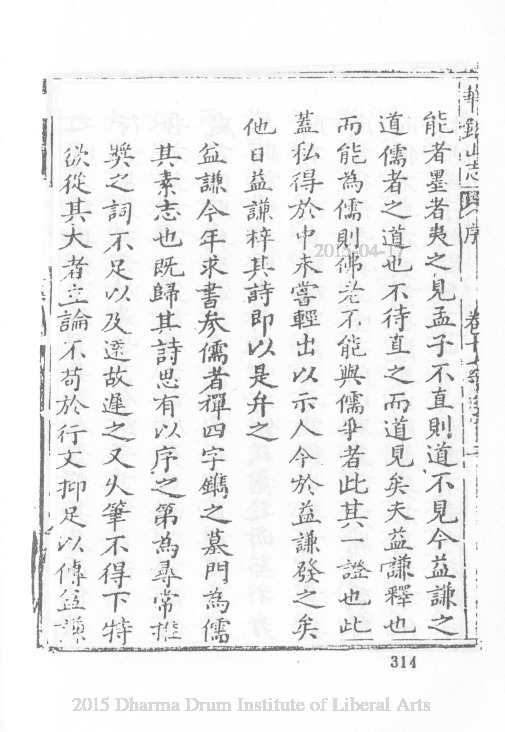 華銀山志
序
卷十
能者墨者夷之見孟子不直則道不見今益謙之
道儒者之道也不待直之而道見矣夫益謙釋也
而能為儒則佛老不能與儒爭者此其一證也此
蓋私得於中未嘗輕出以示人今於益謙發之矣
他日益謙梓其詩即以是弁之
益謙今年求書參儒者禪四字鐫之墓門為儒
其素志也既歸其詩思有以序之第為尋常推
獎之詞不足以及遠故遲之又久筆不得下特
欲從其大者立論不苟於行文抑足以傳益謙
2015-04-1
314
2015 Dharma Drum Institute of Liberal Arts